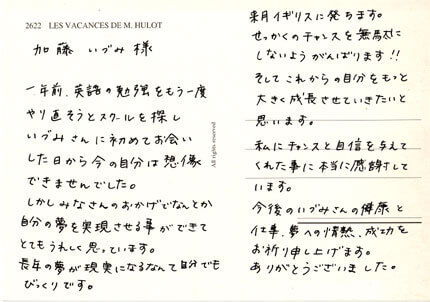 2622 LES VACANCES DE M. HULOT
加藤 いづみ 様
一年前、英語の勉強をもう一度
やり直そうとスクールを探し
いづみさんに初めてお会い
した日から今の自分は想像
できませんでした。
しかしみなさんのおかげでなんとか
自分の夢を実現させる事ができて
とてもうれしく思っています。
長年の夢が現実になるなんて自分でも
びっくりです。
All rights reserved
来月イギリスに発ちます。
せっかくのチャンスを無駄に
しないようがんばります!!
そしてこれからの自分をもっと
大きく成長させていきたいと
思います。
私にチャンスと自信を与えて
くれた事に本当に感謝して
います。
今後のいづみさんの健康と
仕事、夢への情熱、成功を
お祈り申し上げます。
ありがとうございました。